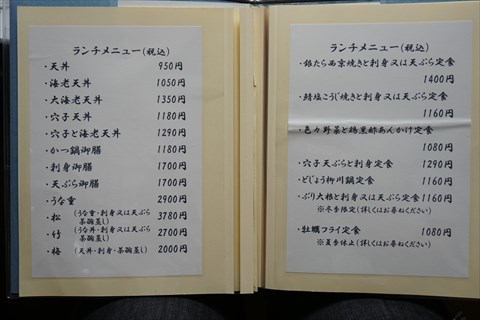 ランチメニュー(税込)
・天丼 950円
・海老天丼 1050円
・大海老天丼 1350円
・穴子天丼 1180円
・穴子と海老天丼 1290円
・かつ鍋御膳 1180円
・刺身御膳 1700円
・天ぷら御膳 1700円
・うな重 2900円
・松 (うな重・刺身又は天ぷら 3780円
茶碗蒸し)
・竹 (うな丼・刺身又は天ぷら 2700円
茶碗蒸し)
・梅 (天丼・刺身・茶碗蒸し) 2000円
ランチメニュー(税込)
・銀たら西京焼きと刺身又は天ぷら定食
1400円
・鯖塩こうじ焼きと刺身又は天ぷら定食
1160円
・色々野菜と鶏黒酢あんかけ定食
1080円
・穴子天ぷらと刺身定食 1290円
・どじょう柳川鍋定食 1160円
・ぶり大根と刺身又は天ぷら定食 1160円
※冬季限定(詳しくはお尋ねください)
・牡蠣フライ定食 1080円
※夏季休止(詳しくはお尋ねください)